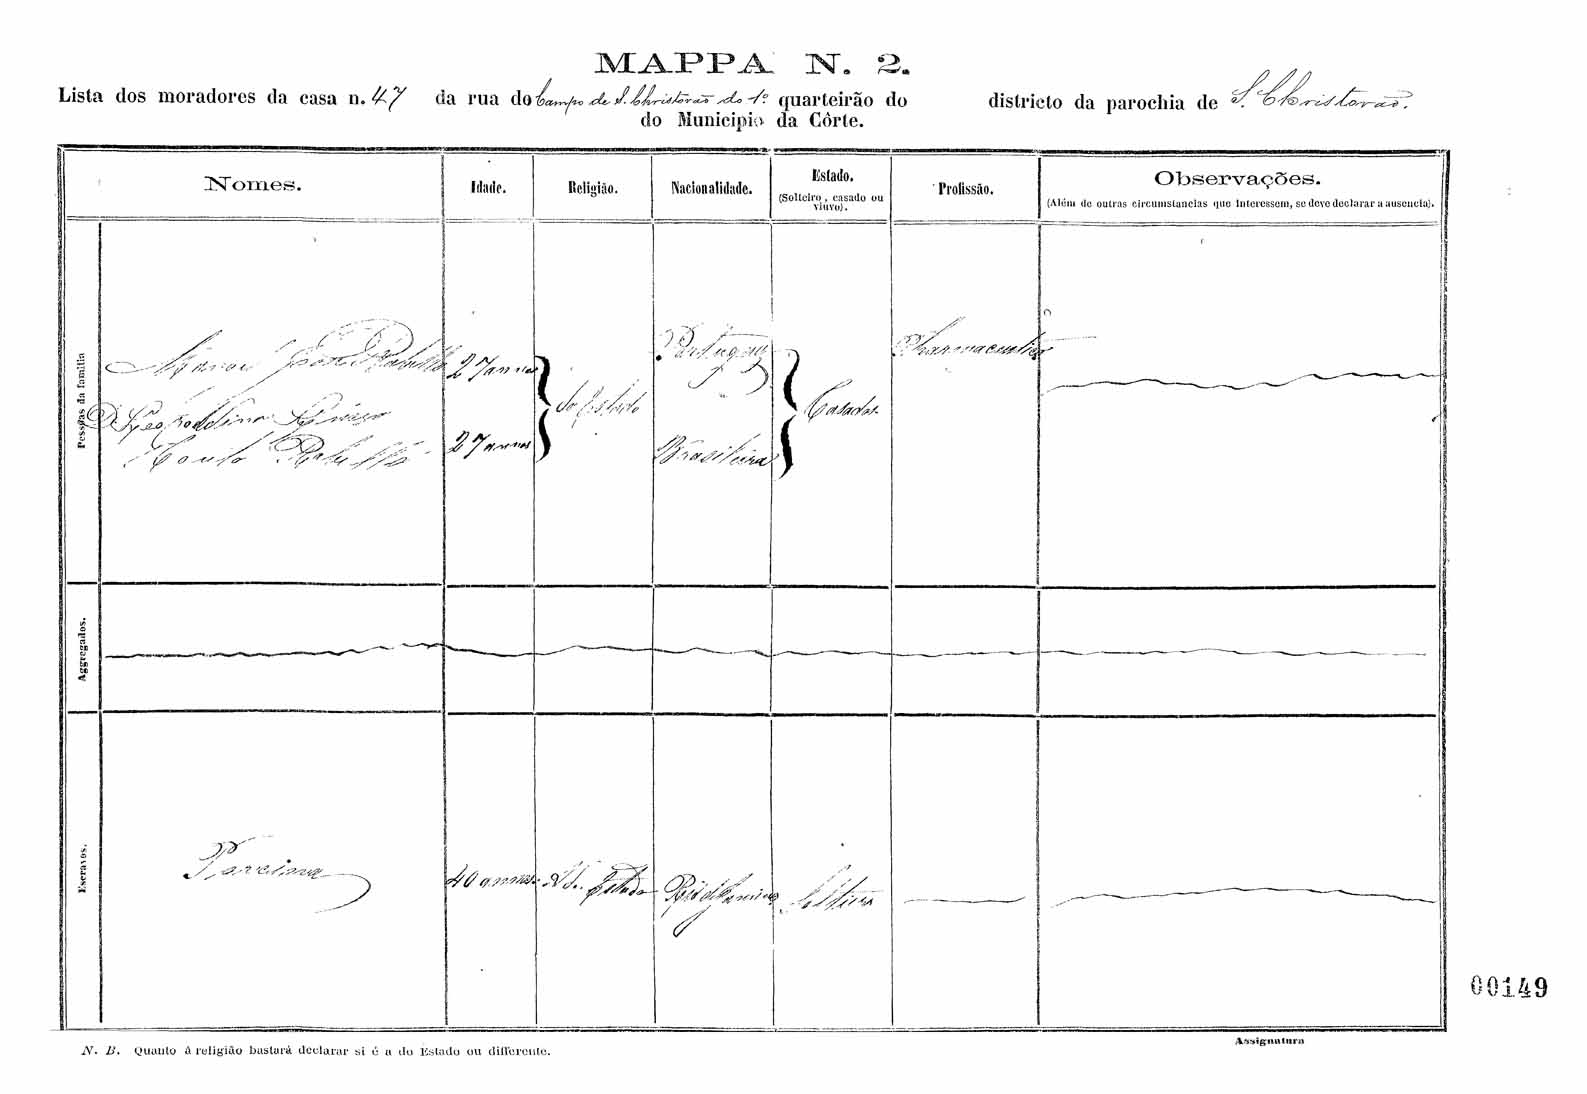 MAPPA N. 2.
Lista dos moradores da casa n. 47 da rua do Campo de S. Christovão do 1º quarteirão do districto da parochia de S. Christovão.
do Municipio da Côrte.
Nomes. Idade. Religião. Nacionalidade. Estado. Profissão. Observações.
(Solteiro, casado ou viuvo). (Além de outras circumstancias que interessem, se deve declarar a ausencia).
Pessoas da familia
Manoel José Rabello 27 annos Portuguez Pharmaceutico
do Estado Casados
D.
Couto Rabello 27 annos Brasileira
Aggregados.
Escravos.
40 annos Estado
N. B. Quanto á religião bastará declarar si é a do Estado ou differente.
Assignatura
00149